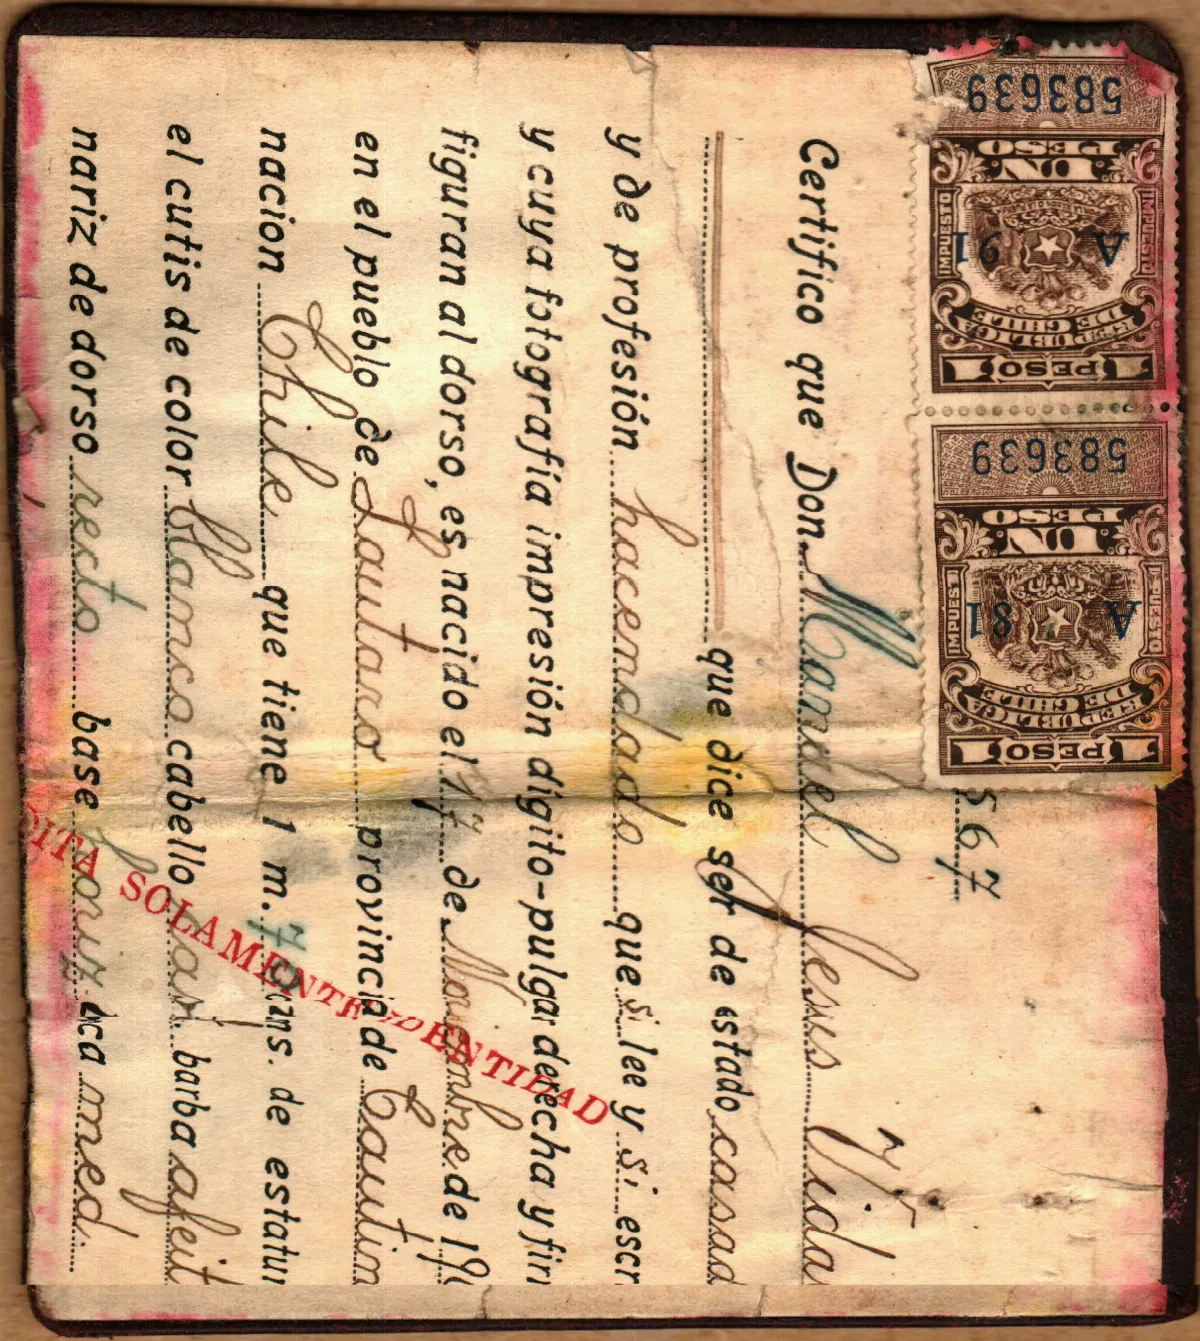 583639
UN PESO
IMPUESTO
IMPUESTO
A 91
REPUBLICA DE CHILE
1 PESO 1
583639
UN PESO
IMPUESTO
IMPUESTO
A 81
REPUBLICA DE CHILE
1 PESO 1
567
Certifico que Don Manuel Jesus Vida
que dice ser de estado casad
y de profesión hacendado que si lee y si escr
y cuya fotografía impresión dígito-pulgar derecha y fir
figuran al dorso, es nacido el 17 de Noviembre de 19
en el pueblo de Lautaro provincia de Cautin
nacion Chile que tiene 1 m. 70 cms. de estatur
el cutis de color blanco cabello barba afeit
nariz de dorso recto base horiz. med.
DITA SOLAMENTE IDENTIDAD